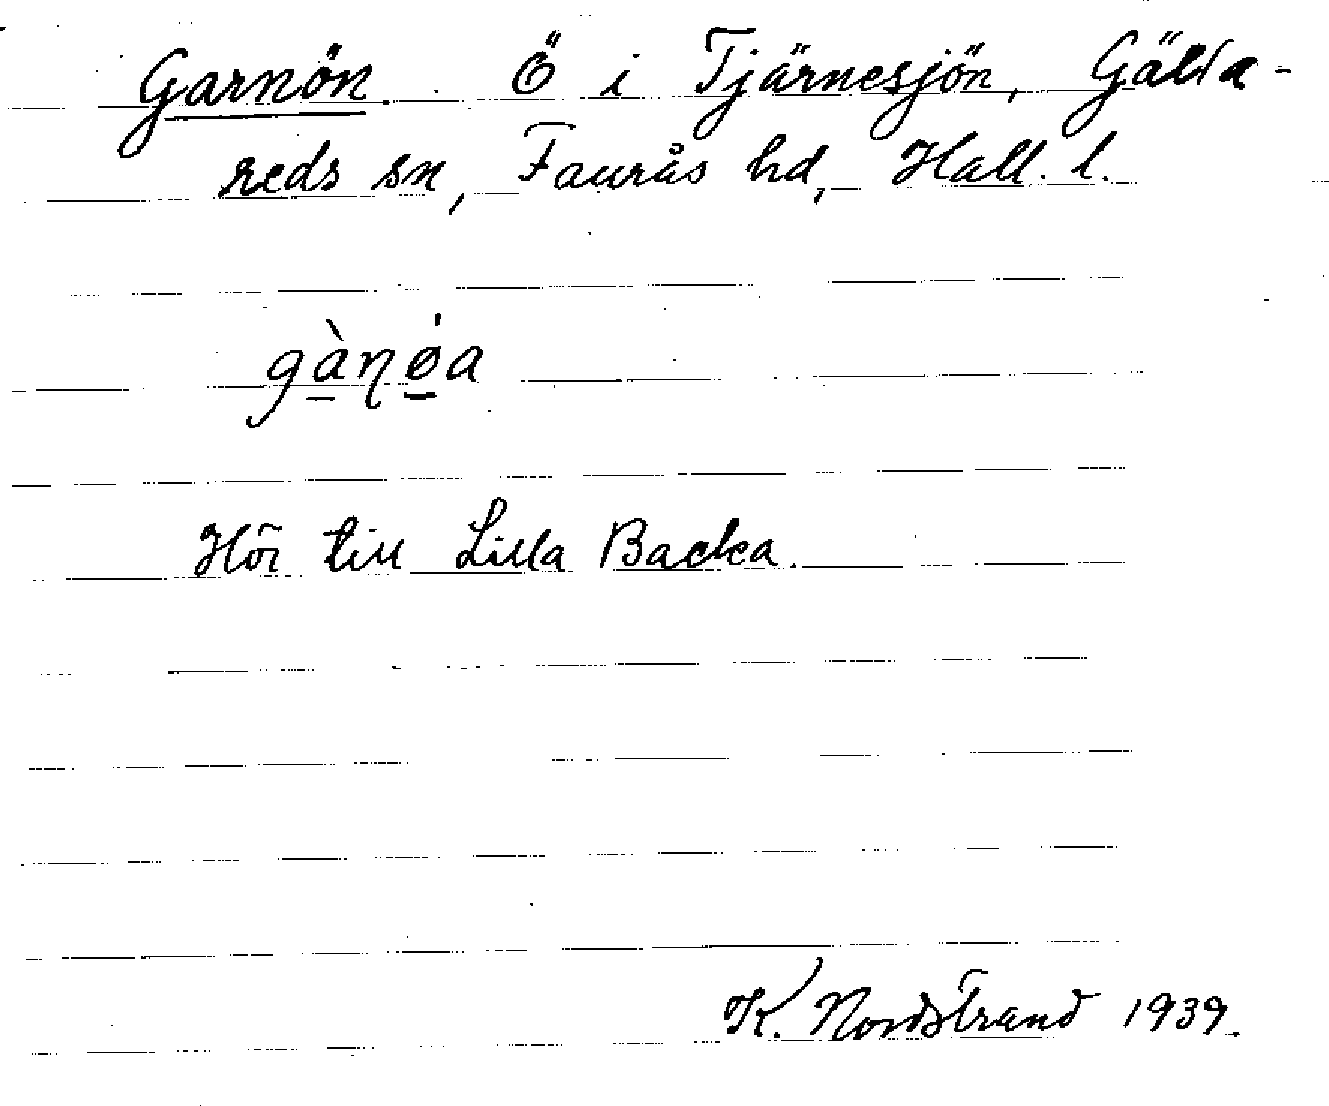 Garnön. Ö i Tjärnesjön, Gälla-
reds sn, Faurås hd, Hall. l.
gàꞃø̇a
Hör till Lilla Backa.
K. Nordstrand 1939.